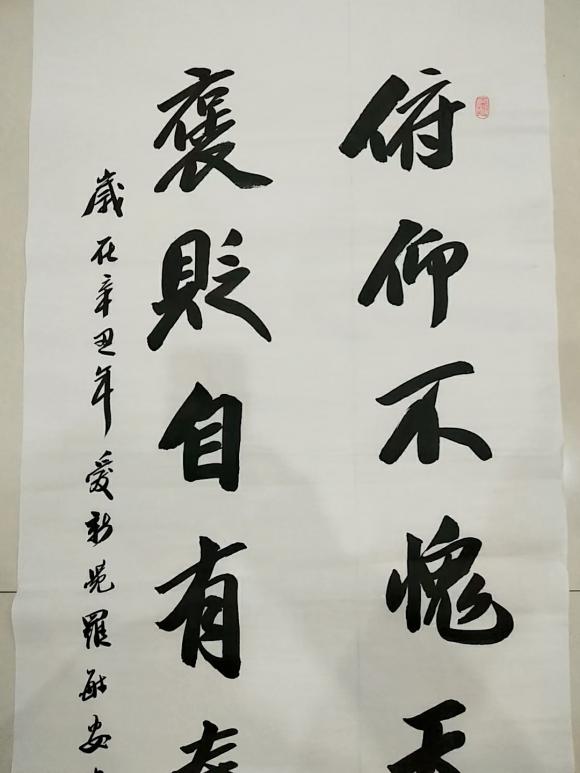 俯仰不愧天
褒貶自有春
歲在辛丑年愛新覺羅敏安